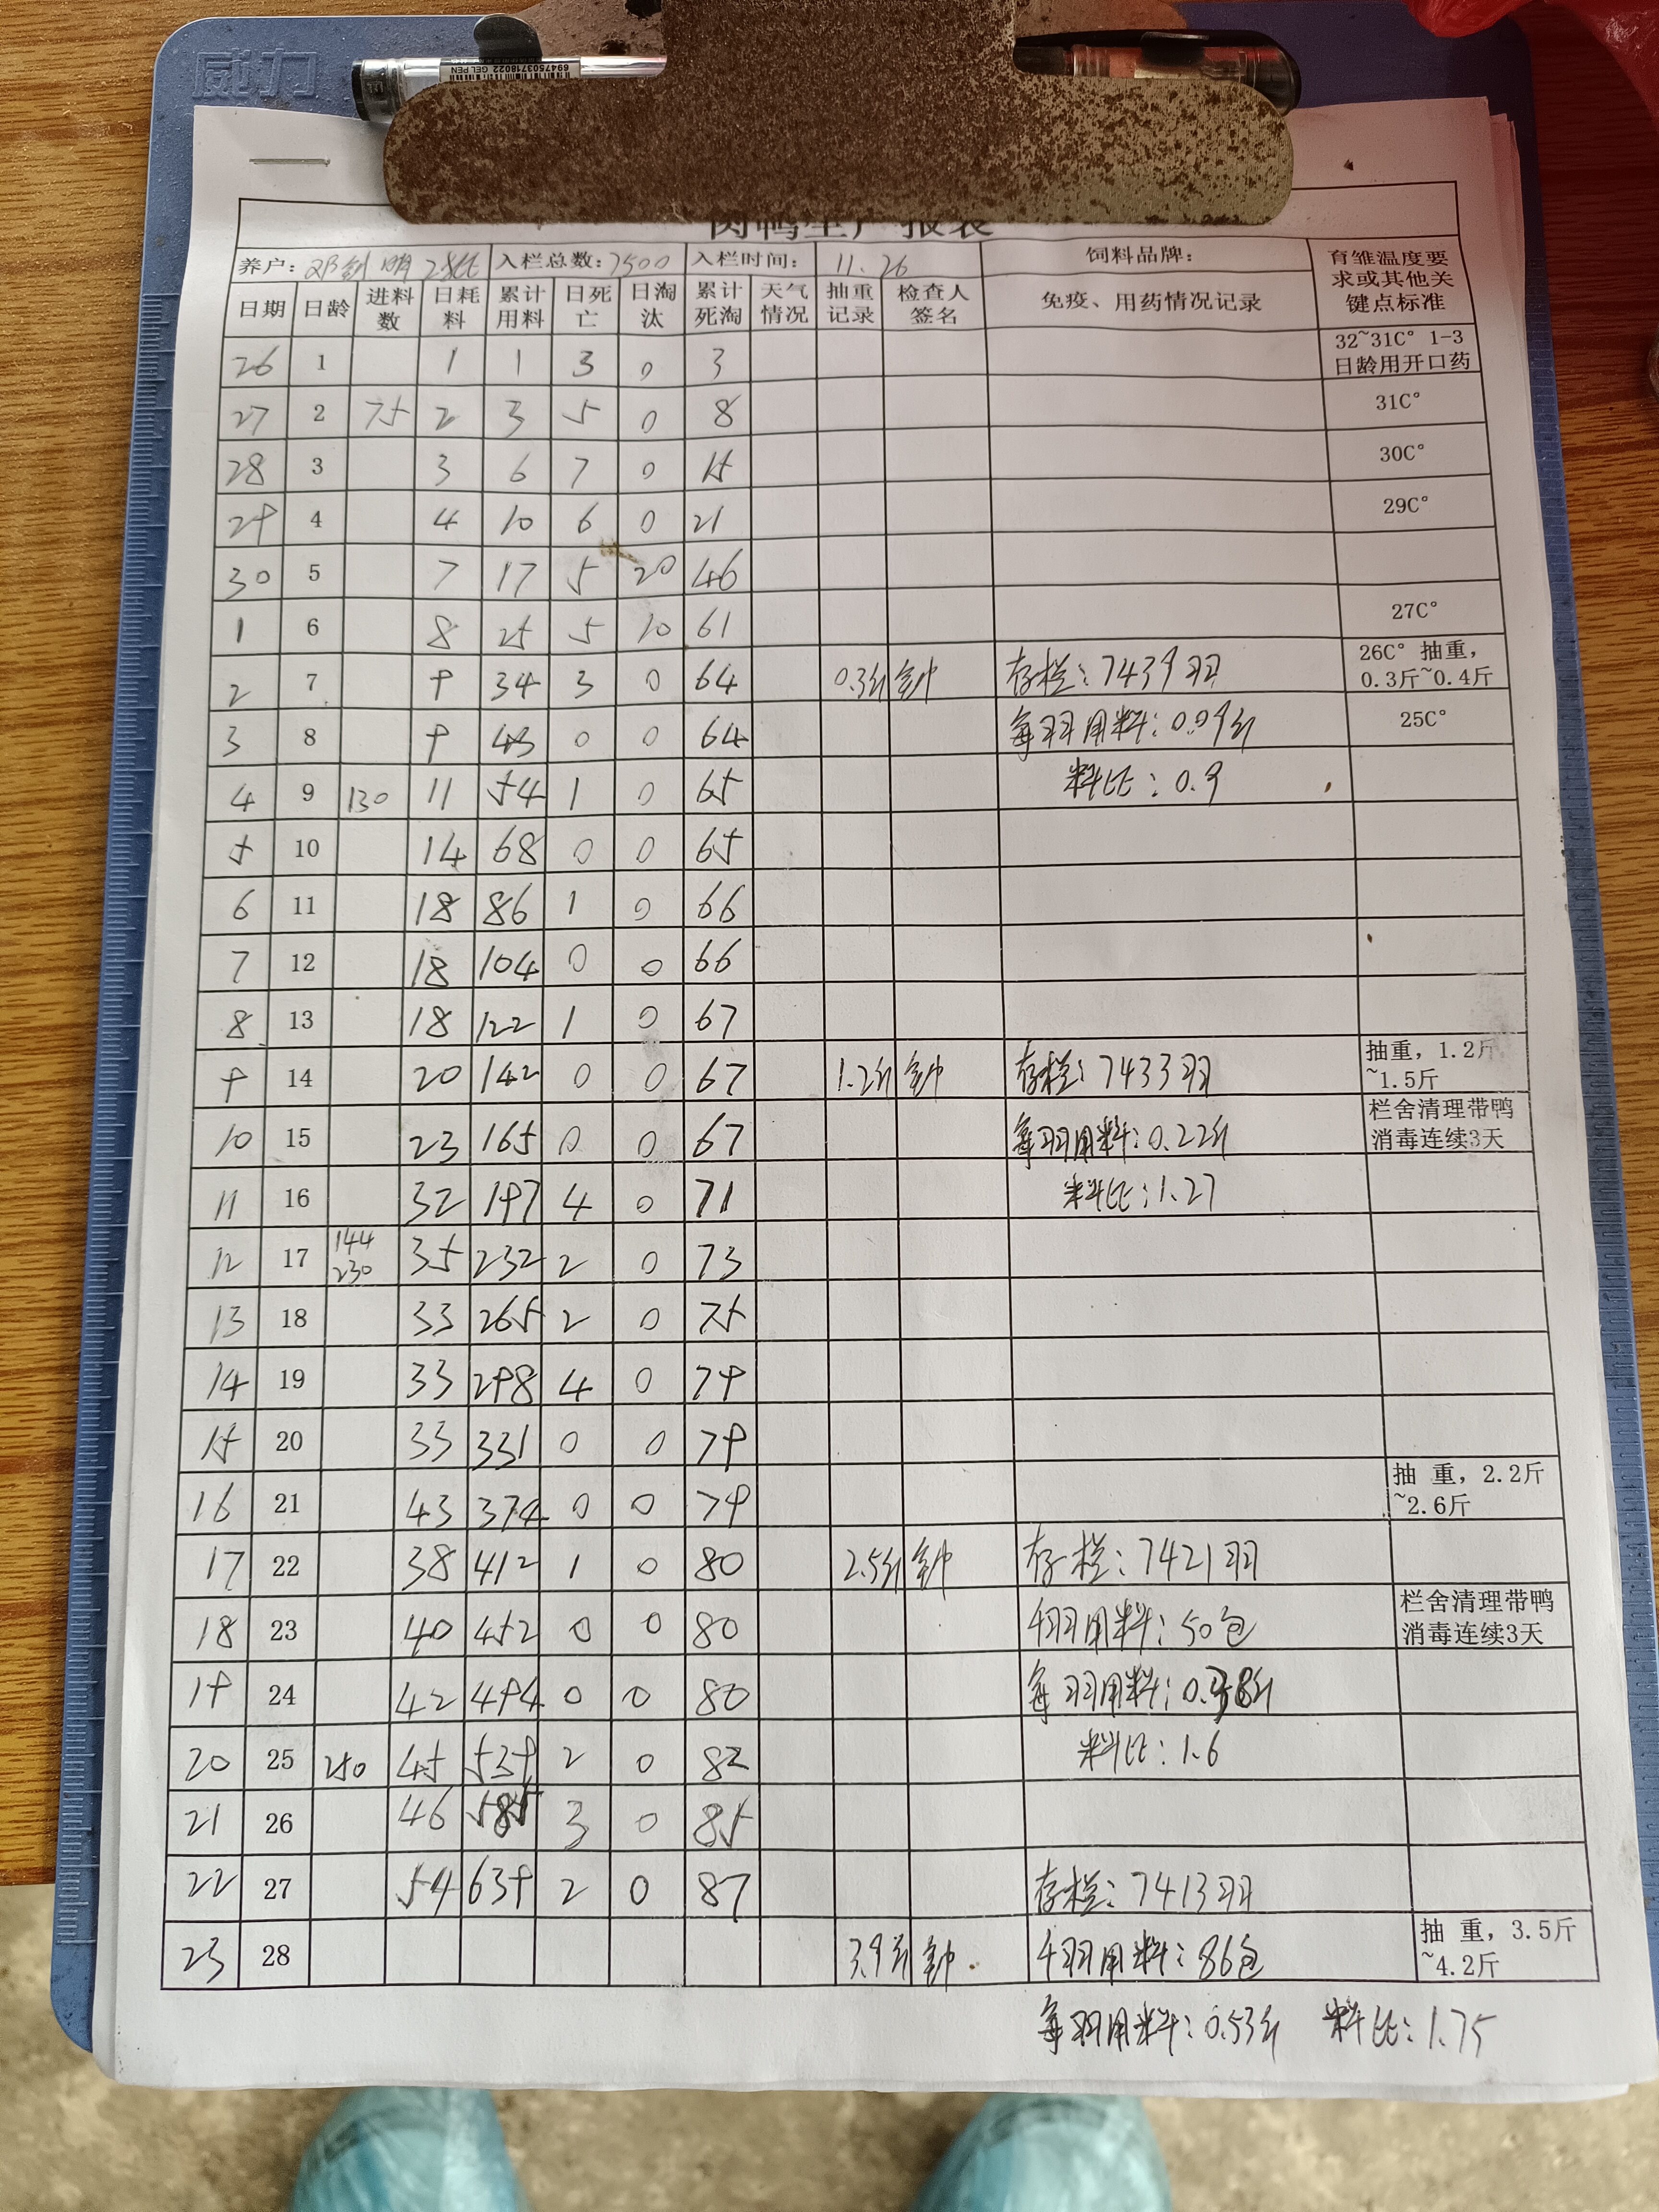 威力
6947503718022 GEL PEN
肉鸭生产报表
养户: 邓剑明 28批 入栏总数: 7500 入栏时间: 11.26 饲料品牌: 育雏温度要求或其他关键点标准
日期 日龄 进料数 日耗料 累计用料 日死亡 日淘汰 累计死淘 天气情况 抽重记录 检查人签名 免疫、用药情况记录
26 1 1 1 3 0 3 32~31C° 1-3日龄用开口药
27 2 75 2 3 5 0 8 31C°
28 3 3 6 7 0 15 30C°
29 4 4 10 6 0 21 29C°
30 5 7 17 5 20 46
1 6 8 25 5 10 61 27C°
2 7 9 34 3 0 64 0.3斤 钟 存栏: 7439羽 26C° 抽重, 0.3斤~0.4斤
3 8 9 43 0 0 64 每羽用料: 0.09斤 25C°
4 9 130 11 54 1 0 65 料比: 0.9
5 10 14 68 0 0 65
6 11 18 86 1 0 66
7 12 18 104 0 0 66
8 13 18 122 1 0 67
9 14 20 142 0 0 67 1.2斤 钟 存栏: 7433羽 抽重, 1.2斤~1.5斤
10 15 23 165 0 0 67 每羽用料: 0.22斤 栏舍清理带鸭消毒连续3天
11 16 32 197 4 0 71 料比: 1.27
12 17 144 230 35 232 2 0 73
13 18 33 265 2 0 75
14 19 33 298 4 0 79
15 20 33 331 0 0 79
16 21 43 374 0 0 79 抽 重, 2.2斤~2.6斤
17 22 38 412 1 0 80 2.5斤 钟 存栏: 7421羽
18 23 40 452 0 0 80 千羽用料: 50包 栏舍清理带鸭消毒连续3天
19 24 42 494 0 0 80 每羽用料: 0.38斤
20 25 250 45 539 2 0 82 料比: 1.6
21 26 46 585 3 0 85
22 27 54 639 2 0 87 存栏: 7413羽
23 28 3.9斤 钟 千羽用料: 86包 抽 重, 3.5斤~4.2斤
每羽用料: 0.53斤 料比: 1.75